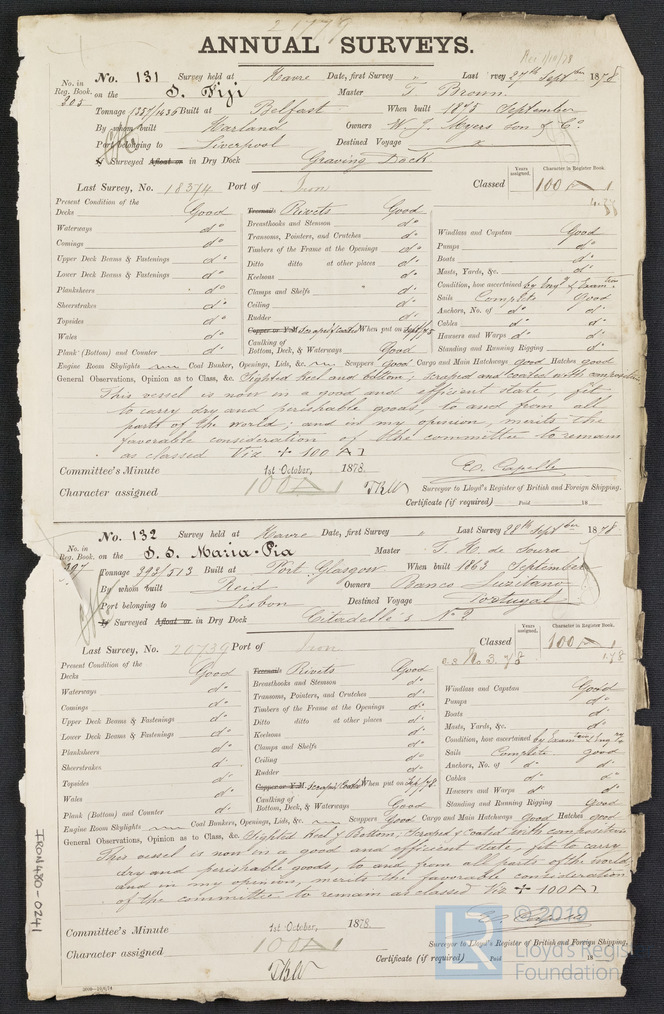 21778
ANNUAL SURVEYS.
Rec 1/10/78
No. in Reg. Book. No. 131 Survey held at Havre Date, first Survey " Last Survey 27th Septber 1878
305 on the S. Fiji Master T. Brown.
Tonnage 1357/1436 Built at Belfast When built 1875 September
By whom built Harland Owners W. J. Myers son & Co.
Port belonging to Liverpool Destined Voyage
If Surveyed Afloat or in Dry Dock Graving Dock.
Years assigned. Character in Register Book.
Last Survey, No. 18374 Port of Iron Classed 100 A 1
4.78
Present Condition of the
Decks Good Treenails Rivets Good Windlass and Capstan Good
Waterways do Breasthooks and Stemson do Pumps do
Comings do Transoms, Pointers, and Crutches do Boats do
Upper Deck Beams & Fastenings do Timbers of the Frame at the Openings do Masts, Yards, &c. do
Lower Deck Beams & Fastenings do Ditto ditto at other places do Condition, how ascertained by
Planksheers do Keelsons do Sails Complete Good
Sheerstrakes do Clamps and Shelfs " Anchors, No. of do do
Topsides do Ceiling do Cables do do
Wales do Rudder do Hawsers and Warps do do
Plank (Bottom) and Counter do Copper or Y.M. Scraped & Coated When put on Sept/75 Standing and Running Rigging do
Caulking of Bottom, Deck, & Waterways Good
Engine Room Skylights Coal Bunker, Openings, Lids, &c. Scuppers Good Cargo and Main Hatchways good Hatches good
General Observations, Opinion as to Class, &c. Sighted keel and bottom; scraped and coated with composition.
This vessel is now in a good and efficient state, fit
to carry dry and perishable goods, to and from all
parts of the world; and in my opinion, merits the
favorable consideration of the committee to remain
as classed Viz + 100 A 1
Committee's Minute 1st October, 1878. E. Capelle
Character assigned 100 A 1 Surveyor to Lloyd's Register of British and Foreign Shipping.
Certificate (if required) Paid 18
No. in Reg. Book. No. 132 Survey held at Havre Date, first Survey " Last Survey 28th Septber 1878
397 on the S. S. Maria-Pia Master T. H. de Soura
Tonnage 393/513 Built at Port Glasgow When built 1863 September
By whom built Reid Owners Banco Luzitano
Port belonging to Lisbon Destined Voyage Portugal
If Surveyed Afloat or in Dry Dock Citadelle's No 2
Years assigned. Character in Register Book.
Last Survey, No. 20739 Port of Iron Classed 100 A 1
s.s. No 3. 1.78
Present Condition of the
Decks Good Treenails Rivets Good Windlass and Capstan Good
Waterways do Breasthooks and Stemson do Pumps do
Comings do Transoms, Pointers, and Crutches do Boats do
Upper Deck Beams & Fastenings do Timbers of the Frame at the Openings do Masts, Yards, &c. do
Lower Deck Beams & Fastenings do Ditto ditto at other places do Condition, how ascertained by
Planksheers do Keelsons do Sails Complete good
Sheerstrakes do Clamps and Shelfs do Anchors, No. of do do
Topsides do Ceiling do Cables do do
Wales do Rudder do Hawsers and Warps do do
Plank (Bottom) and Counter do Copper or Y.M. Scraped & Coated When put on Sept/78. Standing and Running Rigging Good
Caulking of Bottom, Deck, & Waterways Good
Engine Room Skylights Coal Bunkers, Openings, Lids, &c. Scuppers Good Cargo and Main Hatchways Good Hatches good
General Observations, Opinion as to Class, &c. Sighted keel & Bottom, Scraped & Coated with composition
This vessel is now in a good and efficient state, fit to carry
dry and perishable goods, to and from all parts of the world,
and in my opinion, merits the favorable consideration
of the committee to remain as classed Viz + 100 A 1
Committee's Minute 1st October, 1878. E. Capelle
Character assigned 100 A 1 Surveyor to Lloyd's Register of British and Foreign Shipping.
Certificate (if required) Paid 18
IRON480-0241
LR © 2019
Lloyd's Regis
Foundation